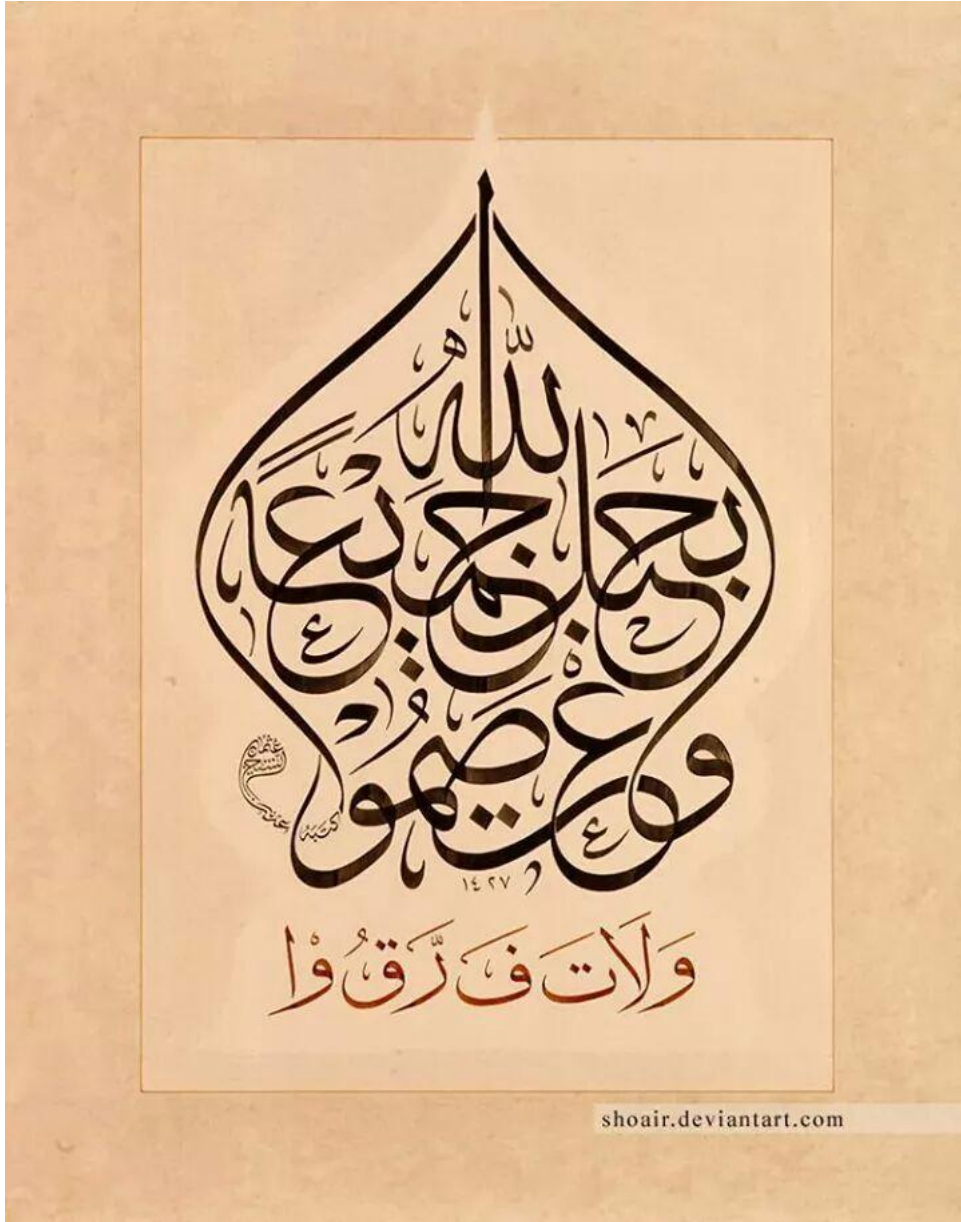 واعتصموا
بحبل الله جميعًا
١٤٢٧
كتبه
وَلَا تَفَرَّقُوْا
shoair.deviantart.com